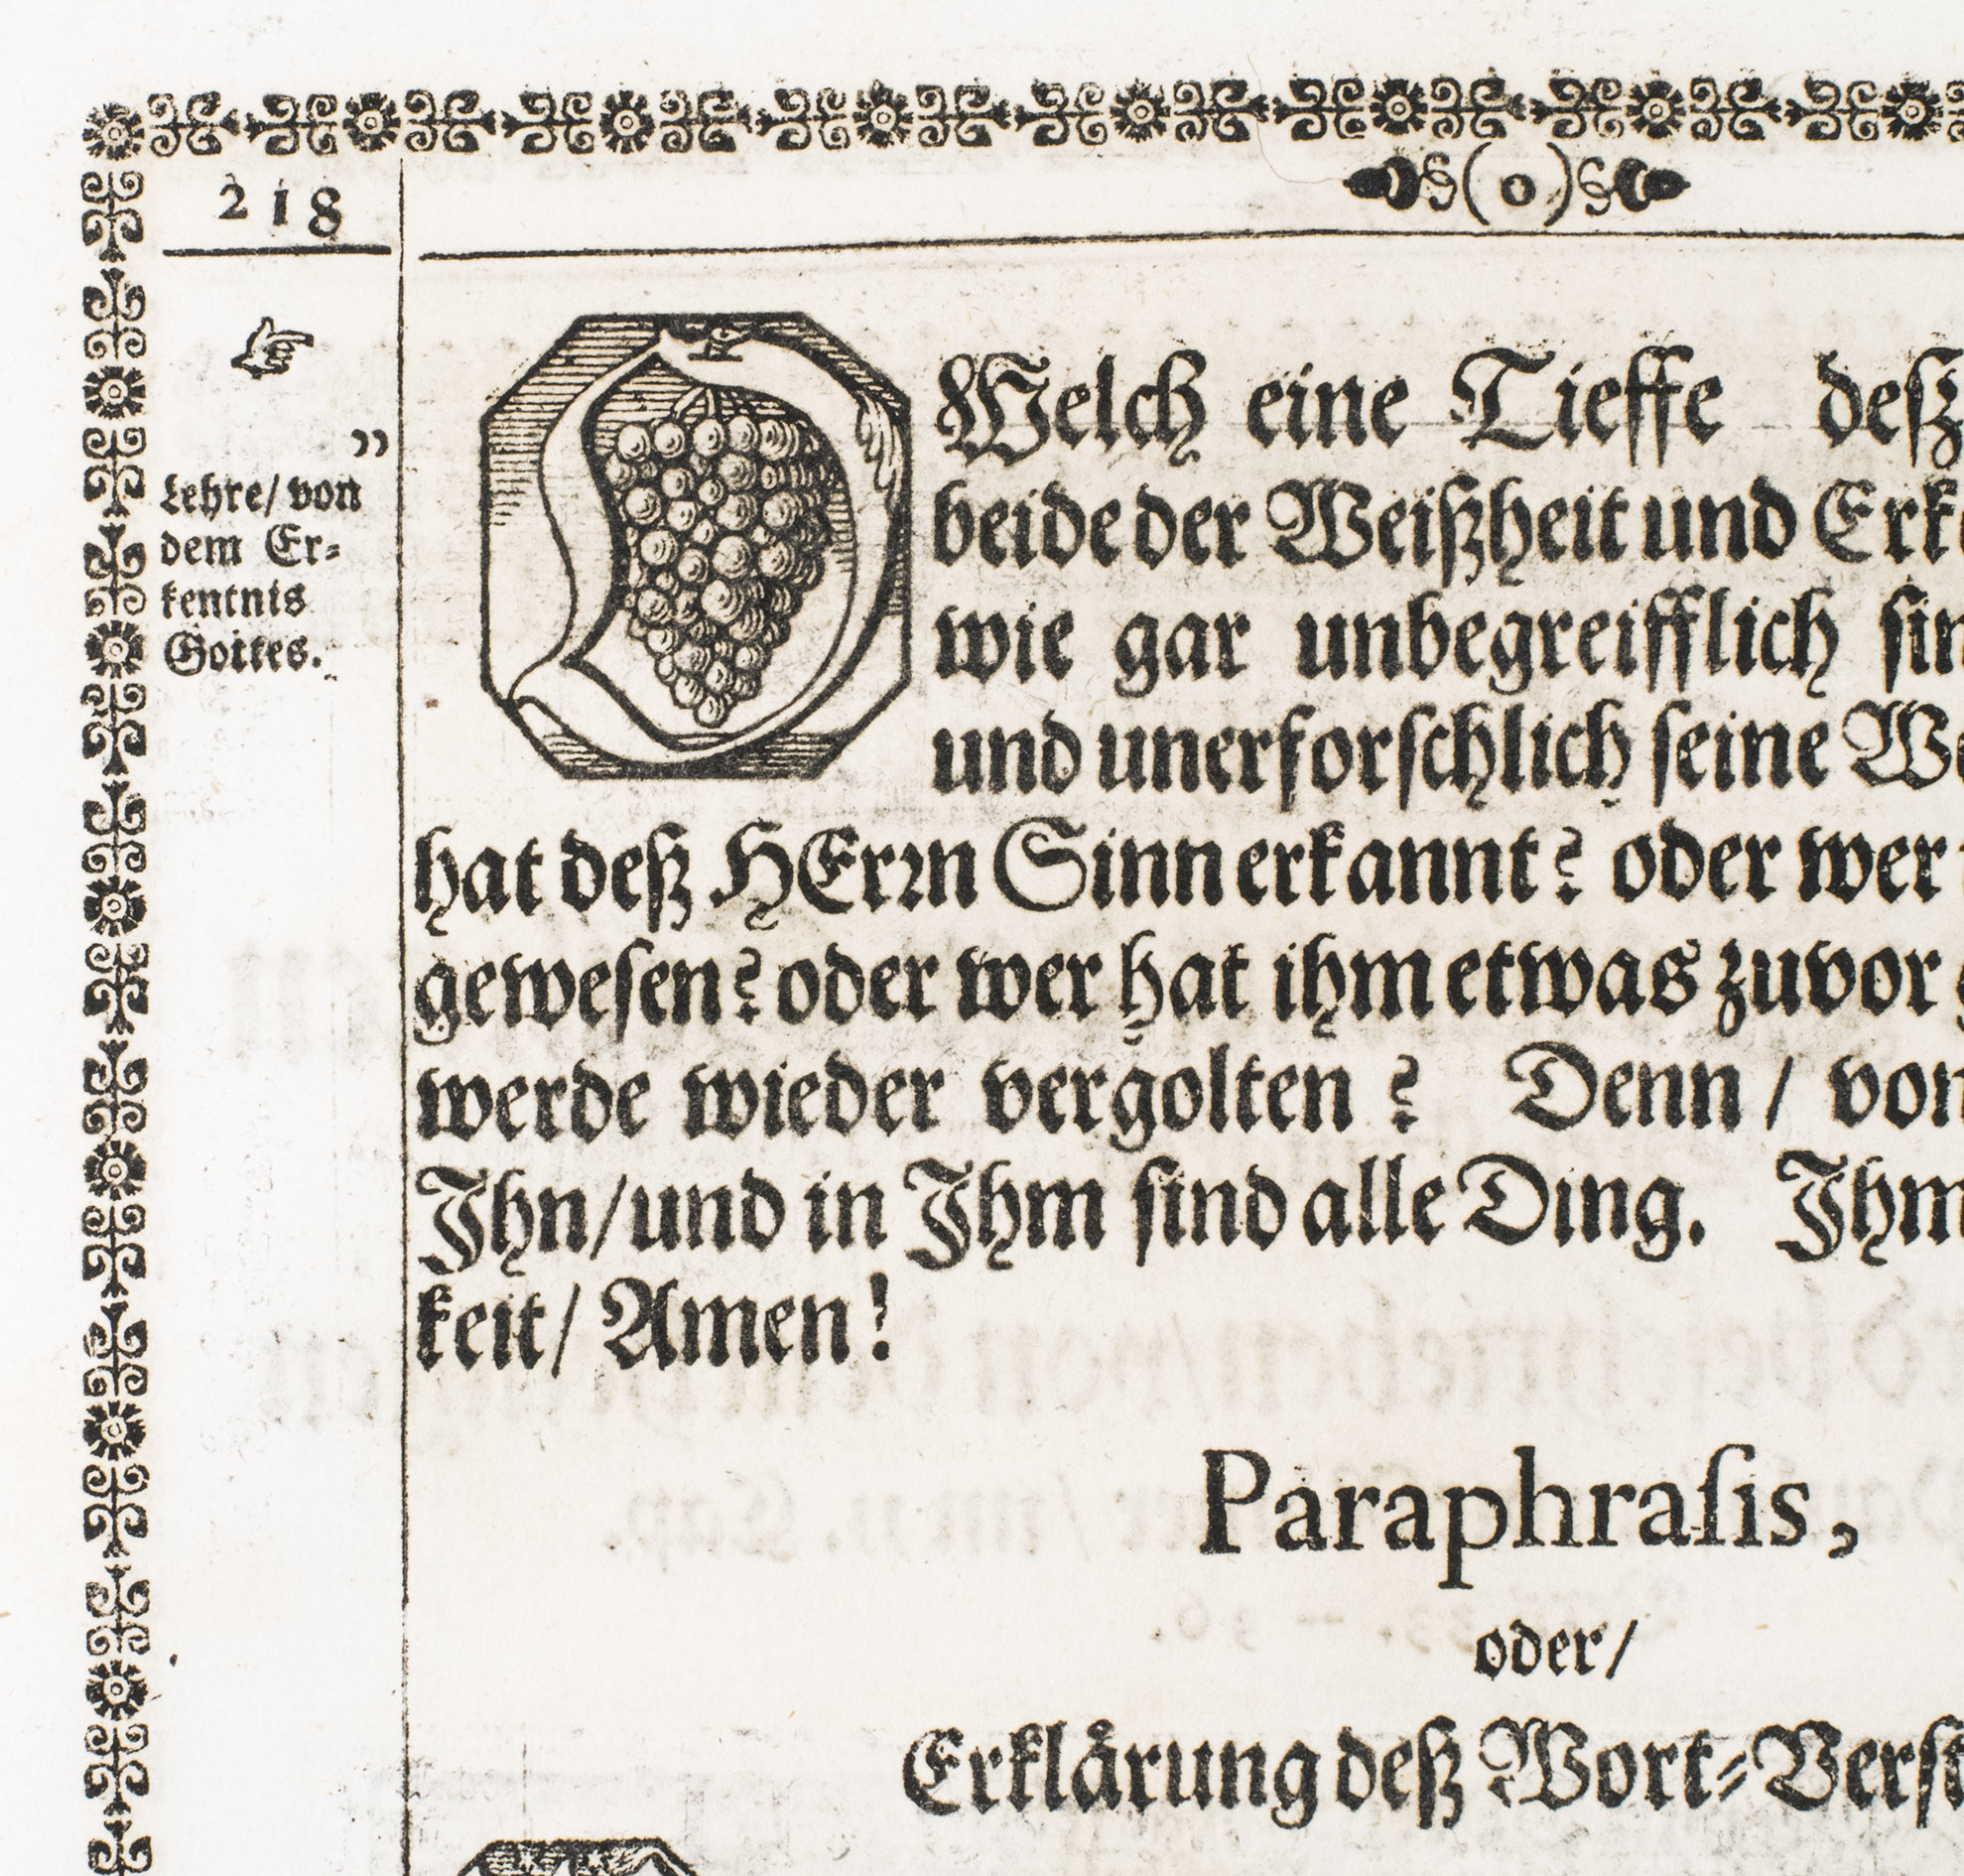 218
(o)
☞
”
Lehre/ von
dem Er-
kentnis
Gottes.
O Welch eine Tieffe deß
beide der Weißheit und Erk
wie gar unbegreifflich sin
und unerforschlich seine We
hat deß HErrn Sinn erkannt? oder wer
gewesen? oder wer hat ihm etwas zuvor
werde wieder vergolten? Denn/ von
Ihn/ und in Ihm sind alle Ding. Ihm
keit/ Amen!
Paraphrasis,
oder/
Erklärung deß Wort-Verst